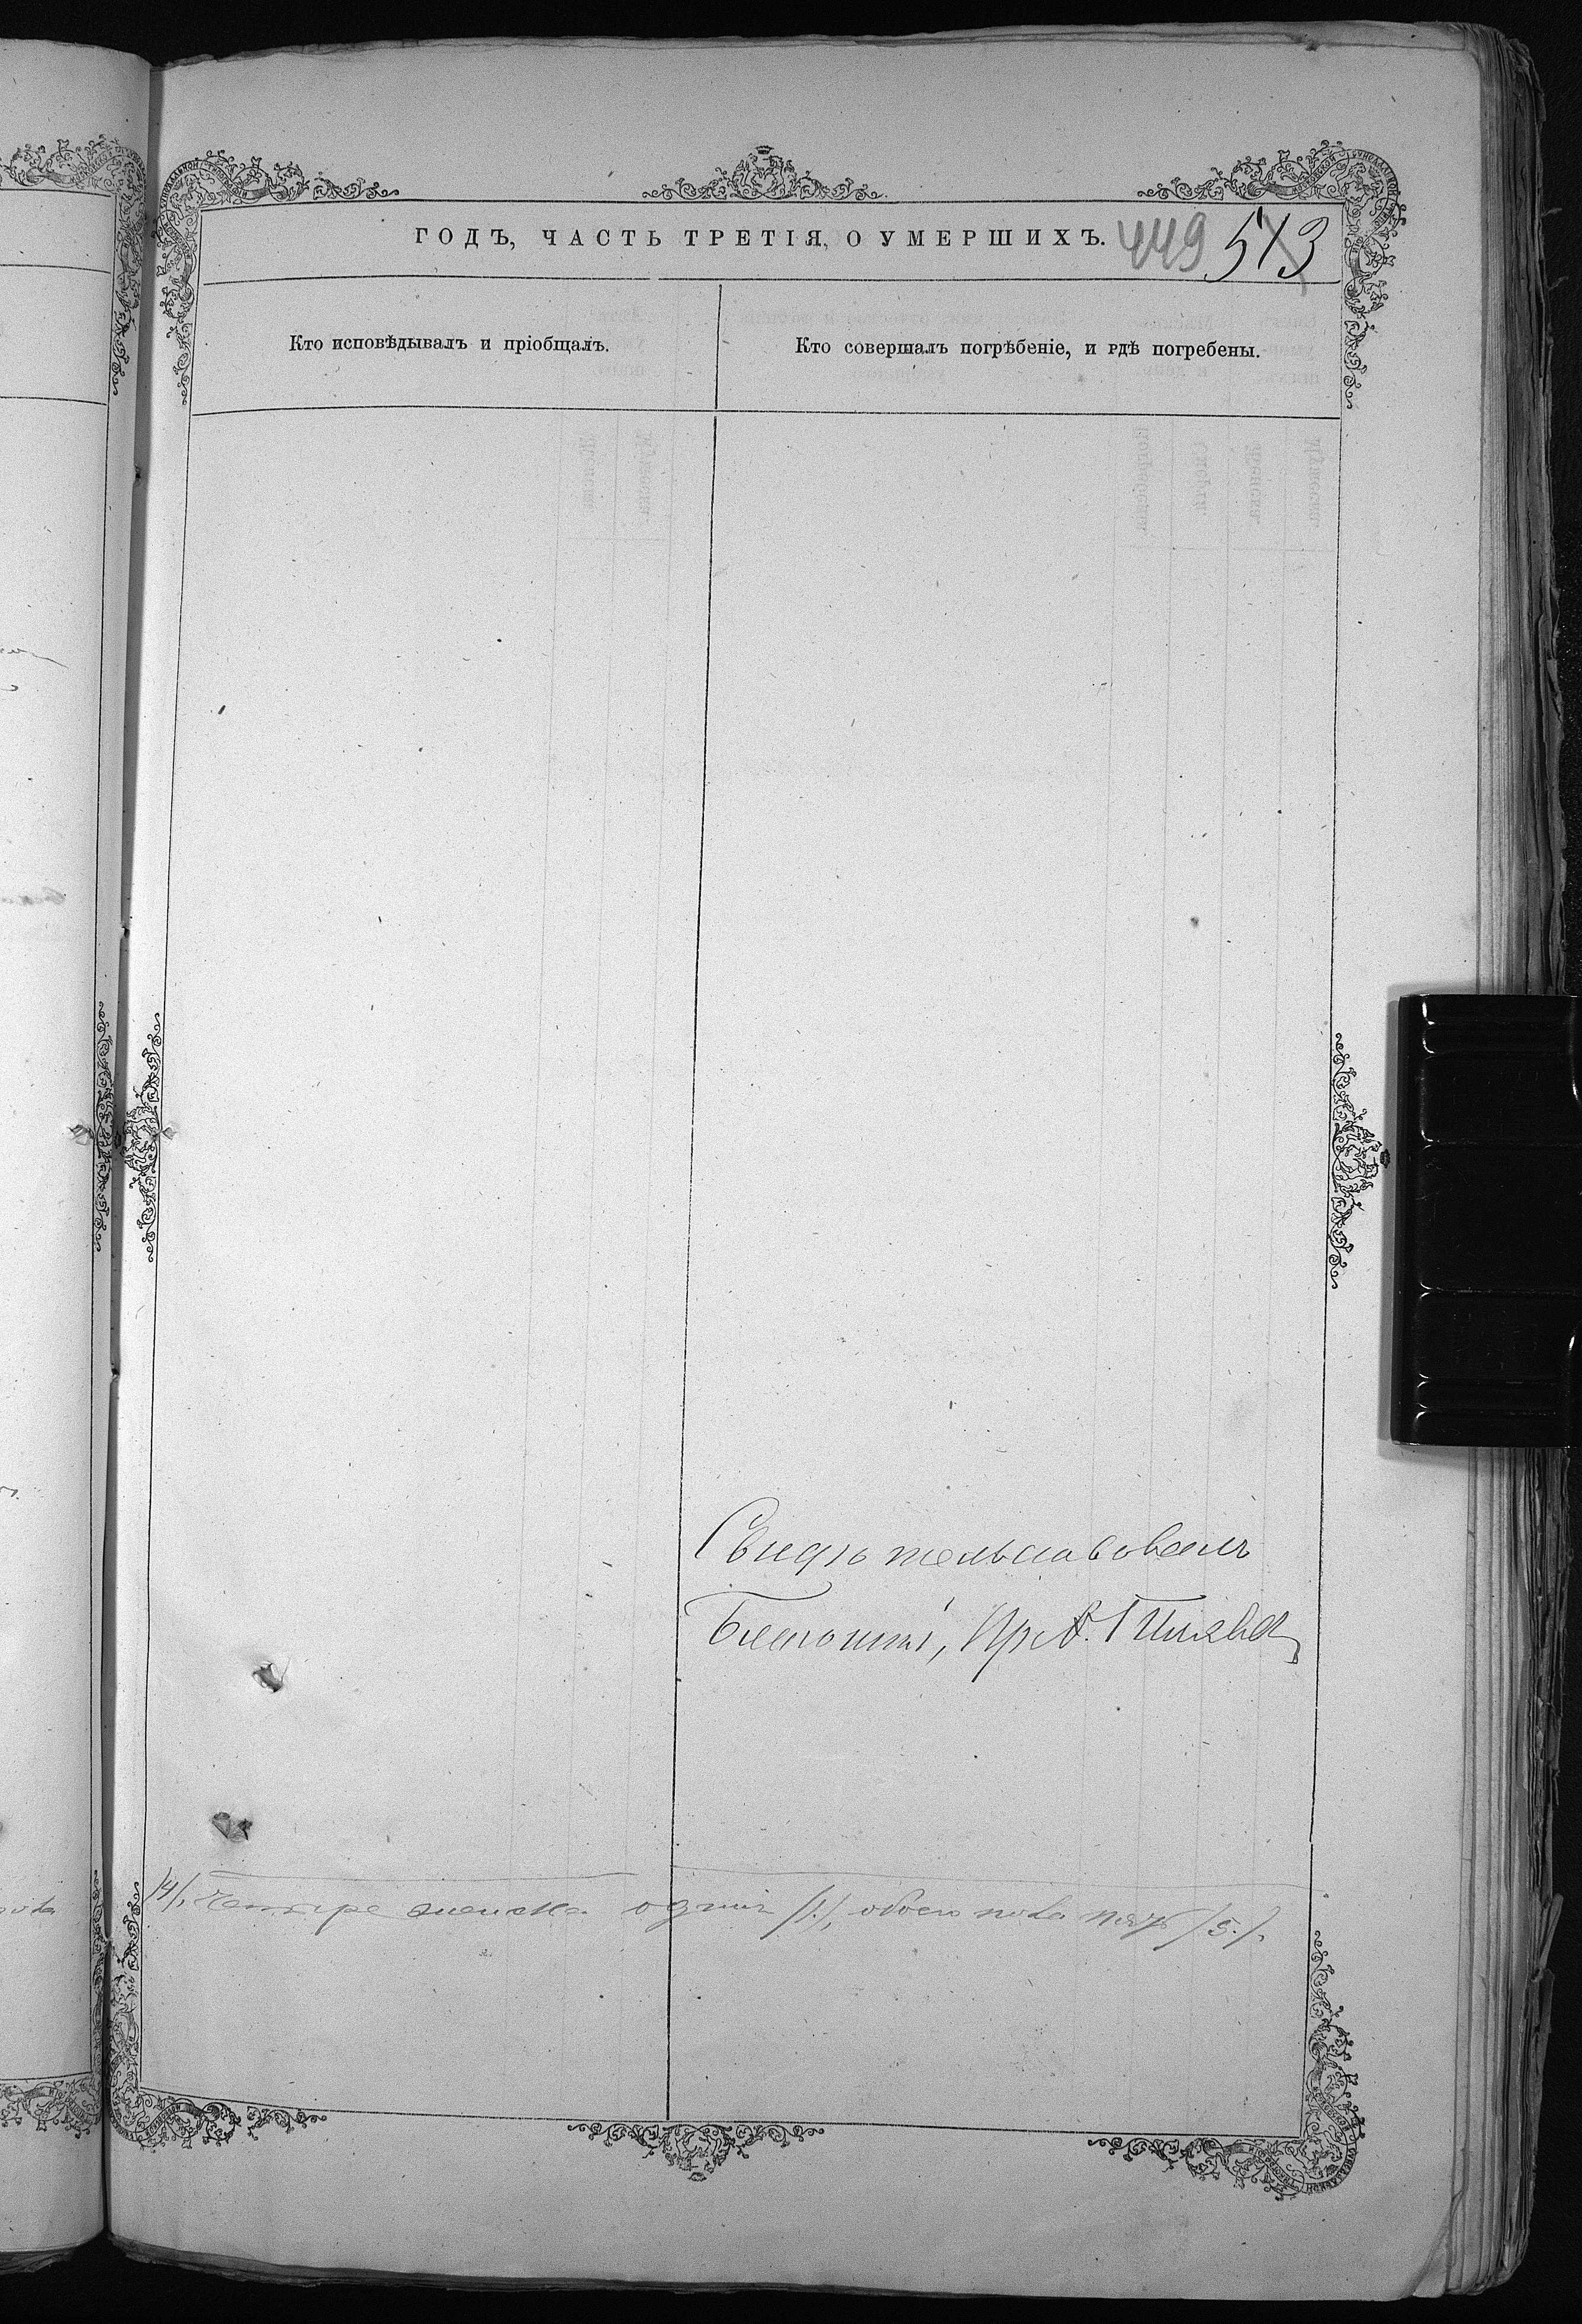 ГОДЪ, ЧАСТЬ ТРЕТІЯ, О УМЕРШИХЪ. 449 513
Кто исповѣдывалъ и пріобщалъ.
Кто совершалъ погрѣбеніе, и гдѣ погребены.
Свидѣтельствовалъ
Благочин,
/4/, четыре женска одинъ /1/, обоего пола пять /5./.